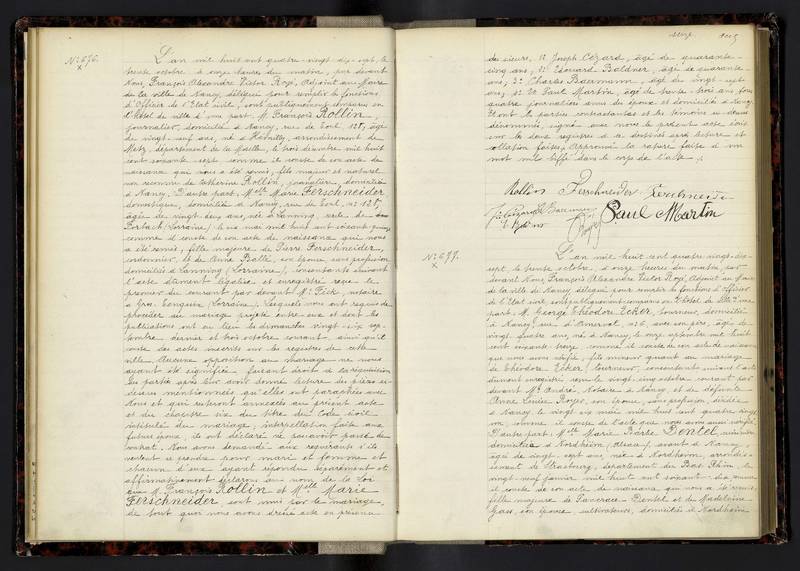 N° 676.
L'an mil huit cent quatre-vingt-dix-sept, le
trente octobre à onze heures du matin, par devant
Nous, François Alexandre Victor Rozé, Adjoint au Maire
de la ville de Nancy, délégué pour remplir les fonctions
d'Officier de l'Etat civil, sont publiquement comparus en
l'Hôtel de ville d'une part, M. François Rollin,
journalier, domicilié à Nancy, rue de Toul, 128, âgé
de vingt-neuf ans, né à arrondissement de
Metz, département de la Moselle, le trois décembre mil huit
cent soixante-sept comme il conste de son acte de
naissance qui nous a été remis, fils majeur et naturel
non reconnu de Catherine Rollin, domiciliée
à Nancy. D'autre part, Melle Marie Ferschneider
domestique, domiciliée à Nancy, rue de Toul, n° 128,
âgée de vingt-deux ans, née à Lanning, cercle de
Forbach (Lorraine) le six mai mil huit cent soixante-quinze
comme il conste de son acte de naissance qui nous
a été remis, fille majeure de Pierre Ferschneider,
cordonnier, et de Anne Ballié, son épouse, sans profession
domiciliés à Lanning (Lorraine), consentants suivant
l'acte dûment légalisé et enregistré reçu le
premier du courant par devant Me Fick, notaire
à Gros-Tenquin (Lorraine). Lesquels nous ont requis de
procéder au mariage projeté entre eux et dont les
publications ont eu lieu les dimanches vingt-six sep-
tembre dernier et trois octobre courant, ainsi qu'il
conste des actes inscrits sur les registres de cette
ville. Aucune opposition au mariage ne nous
ayant été signifiée, faisant droit à la réquisition
des parties après leur avoir donné lecture des pièces ci-
dessus mentionnées qu'elles ont paraphées avec
Nous et qui resteront annexées au présent acte
et du chapitre six du titre du Code Civil
intitulé du mariage, interpellation faite aux
futurs époux, ils ont déclaré ne pas avoir passé de
contrat. Nous avons demandé aux requérants s'ils
veulent se prendre pour mari et femme et
chacun d'eux ayant répondu séparément et
affirmativement déclarons au nom de la loi
que M. François Rollin et Melle Marie
Ferschneider sont unis par le mariage,
de tout quoi nous avons dressé acte en présence
des sieurs, 1° Joseph Cézard, âgé de quarante-
cinq ans, 2° Edouard Baldner, âgé de quarante-
ans, 3° Charles Baermann, âgé de vingt-sept
ans, et 4° Paul Martin, âgé de trente-trois ans, tous
quatre journaliers amis des époux et domiciliés à Nancy.
Et ont les parties contractantes et les témoins ci-dessus
dénommés, signé avec nous le présent acte écrit
sur les deux registres à ce destinés après lecture et
collation faites. Approuvé la rature faite d'un
mot nuls biffé dans le corps de l'acte.
Rollin Ferschneider
J. Cézard Ch Baermann Paul Martin
N° 677.
L'an mil huit cent quatre-vingt-dix-
sept le trente octobre, à onze heures du matin, par
devant Nous, François Alexandre Victor Rozé, Adjoint au Maire
de la ville de Nancy, délégué pour remplir les fonctions d'Officier
de l'Etat civil, sont publiquement comparus en l'Hôtel de Ville d'une
part, M. George Théodore Ecker, tourneur, domicilié
à Nancy, rue d'Amerval, n° 6, avec son père, âgé de
vingt-quatre ans, né à Nancy, le onze septembre mil huit
cent soixante-treize, comme il conste de son acte de naissance
que nous avons vérifié, fils mineur quant au mariage
de Théodore Ecker, tourneur, consentant suivant l'acte
dûment enregistré reçu le vingt-cinq octobre courant par
devant Me André, Notaire à Nancy et de défunte
Anne Louise Royer, son épouse, sans profession, décédée
à Nancy le vingt-six mars mil huit cent quatre-vingt
un, comme il conste de l'acte que nous avons aussi vérifié.
D'autre part, Melle Marie Barbe Dentel, cuisinière
domiciliée à Nordheim, (Alsace), avant à Nancy,
âgée de vingt-sept ans, née à Nordheim, arrondis-
sement de Strasbourg, département du Bas-Rhin, le
vingt-neuf janvier mil huit cent soixante-dix, comme
il conste de son acte de naissance qui nous a été remis,
fille majeure de Dentel et de Madeleine
Gass, son épouse, cultivateurs, domiciliés à Nordheim